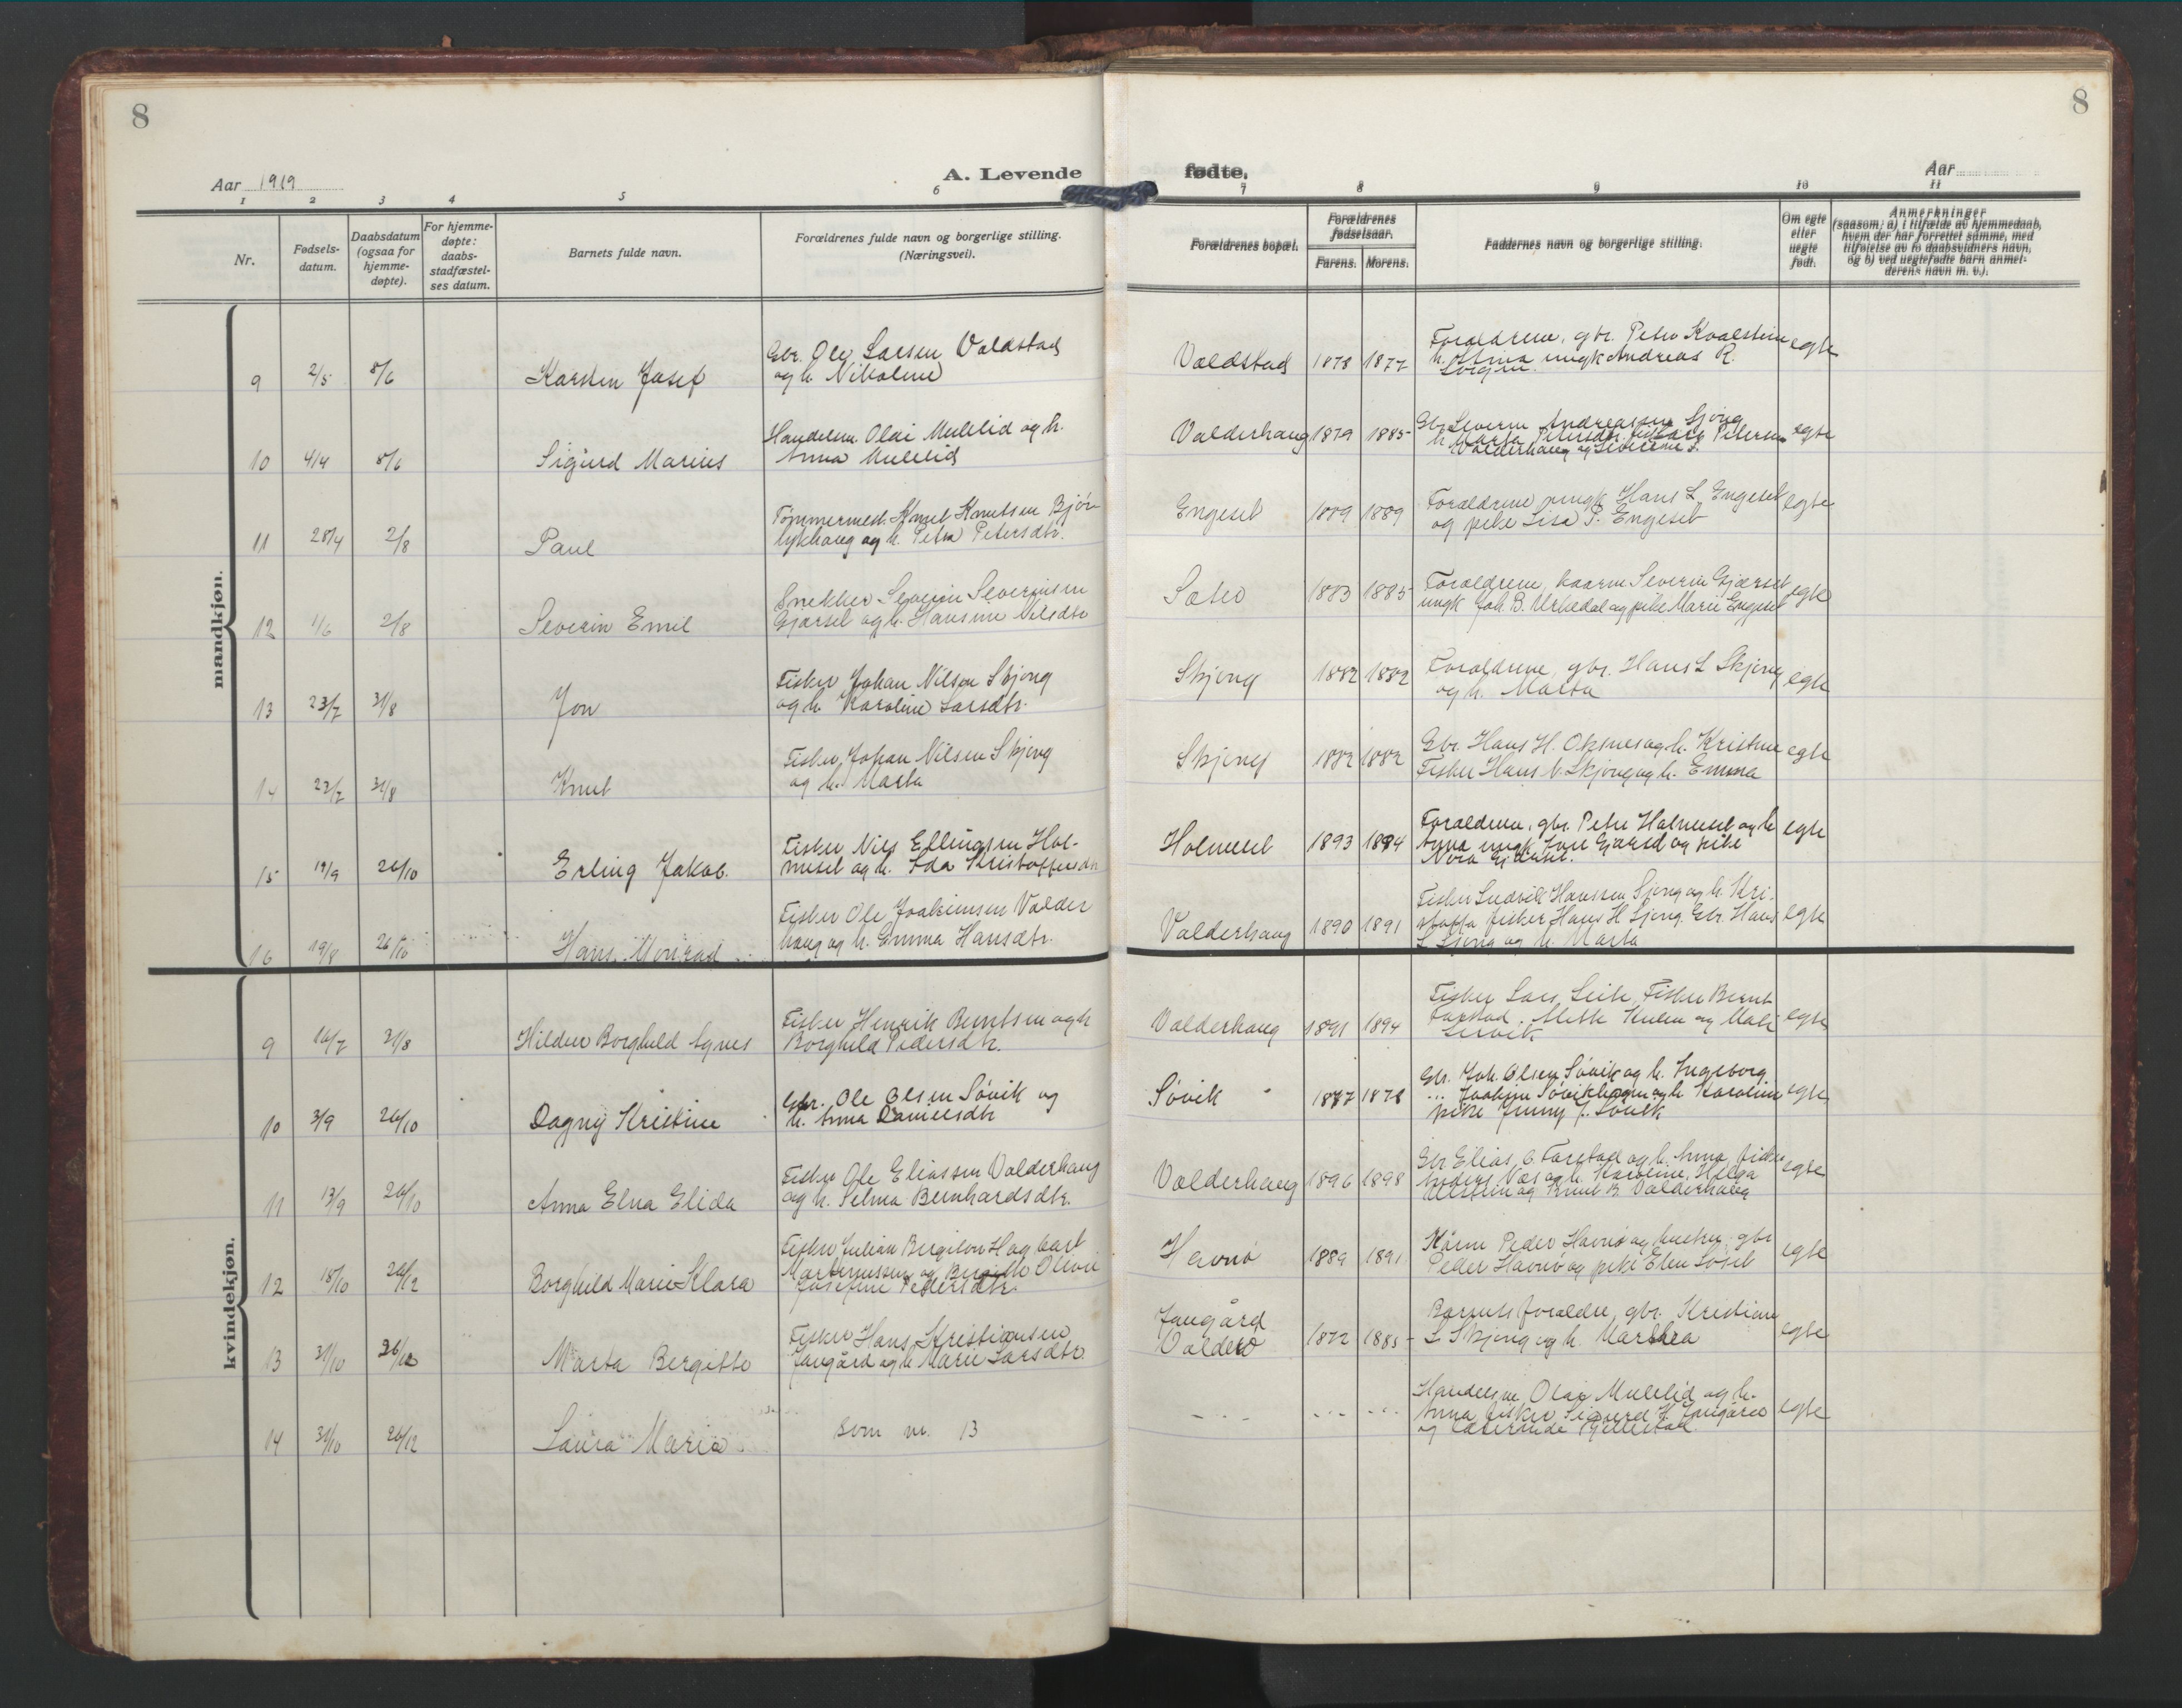 8
8
Aar 1919
A. Levende
fødte.
Aar
1 2 3 4 5 6
7 8 9 10 11
Nr.
Fødsels-
datum.
Daabsdatum
(ogsaa for
hjemme-
døpte).
For hjemme-
døpte:
daabs-
stadfæstel-
ses datum.
Barnets fulde navn.
Forældrenes fulde navn og borgerlige stilling.
(Næringsvei).
Forældrenes bopæl.
Forældrenes
fødselsaar.
Farens. Morens.
Faddernes navn og borgerlige stilling.
Om egte
eller
uegte
født.
Anmerkninger
(saasom: a) i tilfælde av hjemmedaab,
hvem der har forrettet samme, med
tilføielse av to daabsvidners navn,
og b) ved uegtefødte barn anmel-
derens navn m. v.).
mandkjøn.
9 2/5 8/6 Karsten Josef
Gbr. Ole Larsen Valdstad
og h. Nikoline
Valdstad 1878 1877
Forældrene, gbr. Peter Kvalsteim
h. Ostina ungk Andreas R.
egte
10 4/4 8/6 Sigurd Marius
Handelsm. Olai Mulelid og h.
Anna Mulelid
Valderhaug 1879 1885
Gbr. Severin Andreassen Sjong
h. Marta Petersdtr. Petersen
Valderhaug og Severine S.
egte
11 28/4 2/8 Paul
Tømmermest. Knut Knutsen Bjør
lykhaug og h. Petra Petersdtr.
Engeset 1889 1889
Forældrene ungk Hans L Engeset
og pike Lisa P. Engeset
egte
12 1/6 2/8 Severin Emil
Snekker Severin Severinsen
Gjærset og h. Hansine Nilsdtr
Sætre 1883 1885
Forældrene, kaarm Severin Gjærset
ungk Joh. B. Urkedal og pike Marie Engeset
egte
13 23/7 31/8 Jon
Fisker Johan Nilsen Skjong
og h. Karoline Larsdtr.
Skjong 1882 1882
Forældrene, gbr. Hans L Skjong
og h. Marta
egte
14 23/7 31/8 Knut
Fisker Johan Nilsen Skjong
og h. Marta
Skjong 1882 1882
Gbr. Hans H. Oksnes og h. Kristine
Fisker Hans V. Skjong og h. Emma
egte
15 14/9 26/10 Erling Jakob.
Fisker Nils Ellingsen Hol-
meset og h. Ida Kristoffersdtr
Holmeset 1893 1894
Forældrene, gbr. Peter Holmeset og h
Anna ungk Ivar Gjærset og pike
Nora Gjærset.
egte
16 19/8 26/10 Hans Monrad
Fisker Ole Joakimsen Valder
haug og h. Emma Hansdtr.
Valderhaug 1890 1891
Fisker Ludvik Hanssen Sjong og h. Kri-
stoffa fisker Hans H Sjong. Gbr. Hans
L Sjong og h. Marta
egte
kvindekjøn.
9 16/7 31/8 Hildur Borghild Agnes
Fisker Henrik Berntsen og h
Borghild Pedersdtr.
Valderhaug 1891 1894
Fisker Lars Leite, Fisker Bernt
Farstad. Mette Kulen og Mali
Lervik
egte
10 3/9 26/10 Dagny Kristine
Gbr. Ole Olsen Søvik og
h. Anna Danielsdtr
Søvik 1877 1878
Gbr. Joh. Olsen Søvik og h. Ingeborg
... Joakim Søvikhagen og h Karoline
pike Jenny J. Søvik
egte
11 13/9 26/10 Anna Elna Elida
Fisker Ole Eliassen Valderhaug
og h. Selma Bernhardsdtr.
Valderhaug 1896 1898
Gbr Elias O. Farstad og h. Anna, fisker
Anders Næs og h. Karoline, Helga
Ulstein og Knut B. Valderhaug
egte
12 18/10 26/12 Borghild Marie Klara
Fisker Julian Birgiton Hagbart
Martinussen og Bergitte Olivie
Josefine Pedersdtr.
Havnø 1889 1891
Kårm Peder Havnø og hustru gbr
Peder Havnø og pike Elen Løset
egte
13 31/10 26/12 Marta Bergitte
Fisker Hans Kristiansen
Jangård og h. Marie Larsdtr.
Jangård
Valderø 1872 1885
Barnets forældre, gbr. Kristian
L Skjong og h. Marthea
egte
14 31/10 26/12 Laura Maria
Som nr. 13
- . . - . . . . . .
Handelsm Olai Mulelid og h.
Anna fisker Sigurd H. Jangård
og lærerinde Gjellestad.
egte